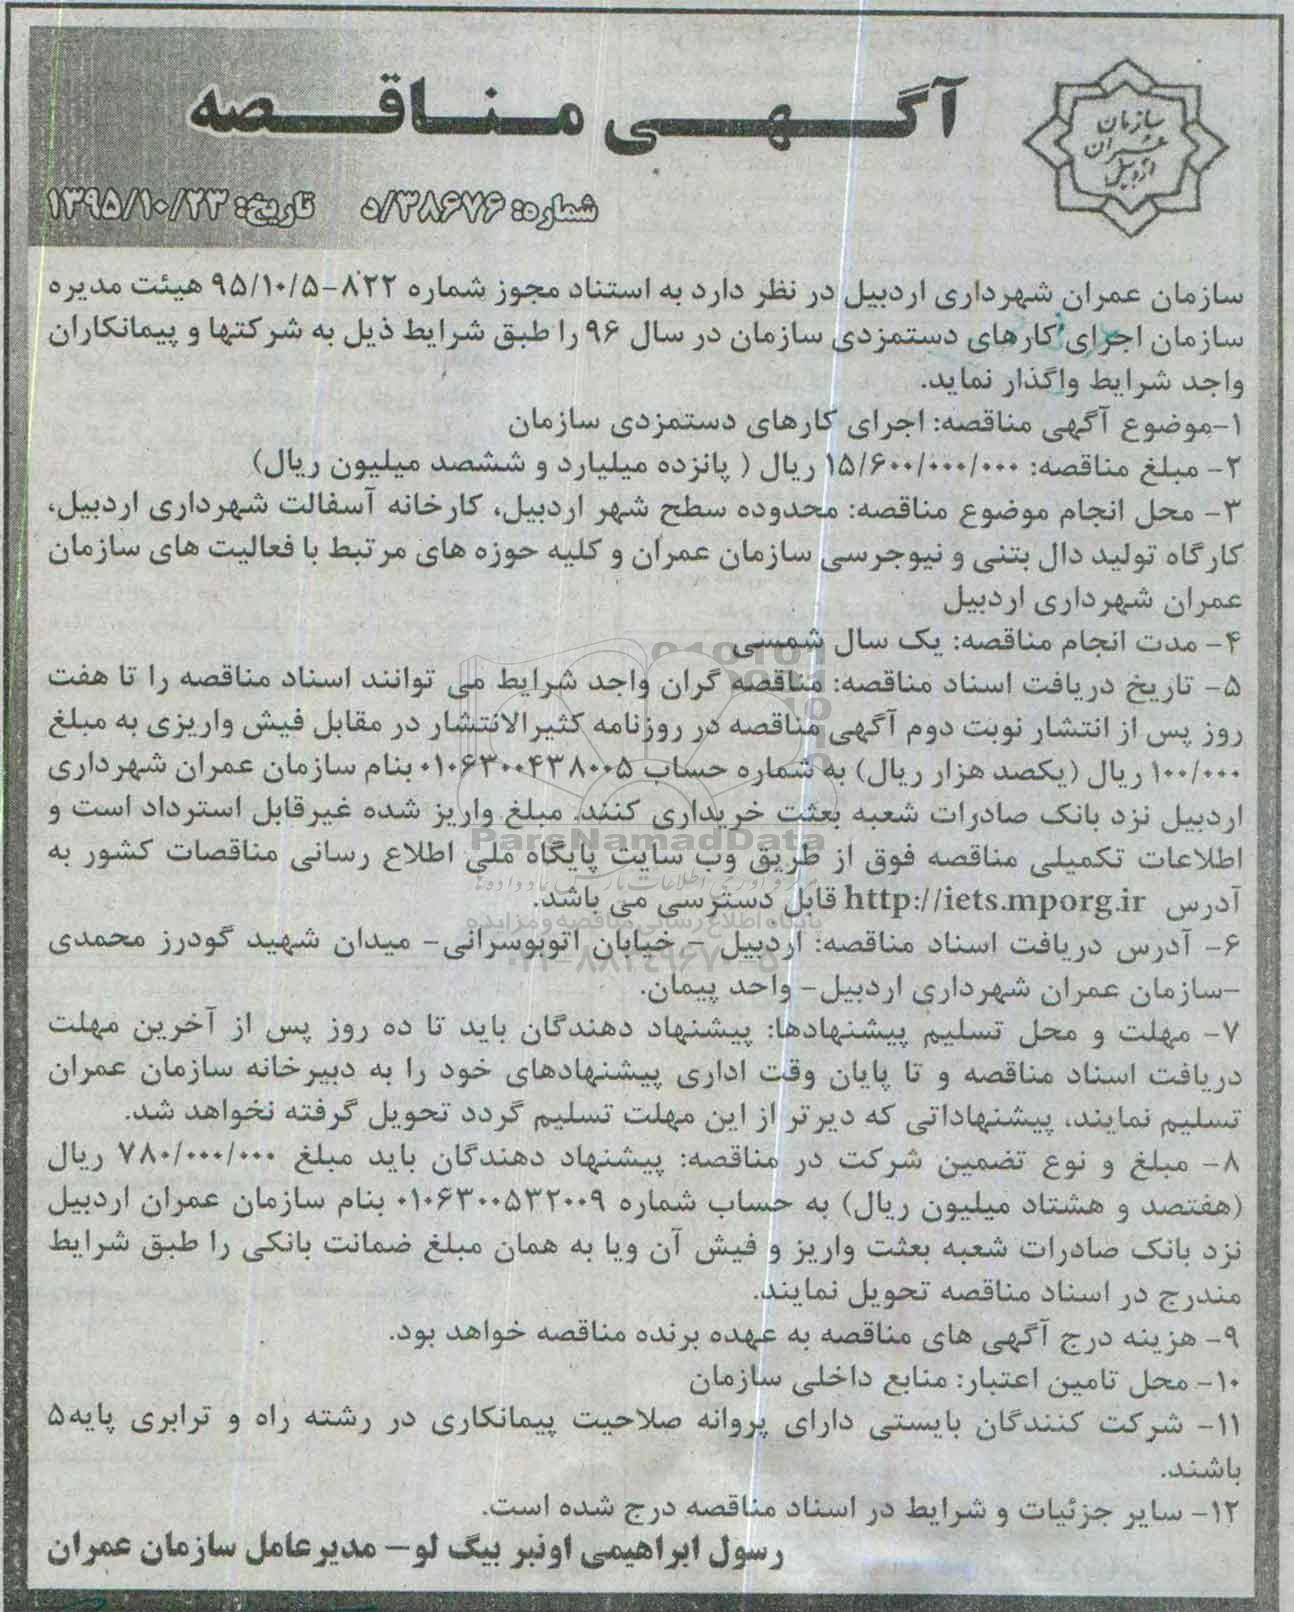 سازمان
عمران
اردبیل
آگهی مناقصه
شماره: ۳۸۶۷۶/د تاریخ: ۱۳۹۵/۱۰/۲۳
سازمان عمران شهرداری اردبیل در نظر دارد به استناد مجوز شماره ۸۲۲-۹۵/۱۰/۵ هیئت مدیره
سازمان اجرای کارهای دستمزدی سازمان در سال ۹۶ را طبق شرایط ذیل به شرکتها و پیمانکاران
واجد شرایط واگذار نماید.
۱-موضوع آگهی مناقصه: اجرای کارهای دستمزدی سازمان
۲- مبلغ مناقصه: ۱۵/۶۰۰/۰۰۰/۰۰۰ ریال ( پانزده میلیارد و ششصد میلیون ریال)
۳- محل انجام موضوع مناقصه: محدوده سطح شهر اردبیل، کارخانه آسفالت شهرداری اردبیل،
کارگاه تولید دال بتنی و نیوجرسی سازمان عمران و کلیه حوزه های مرتبط با فعالیت های سازمان
عمران شهرداری اردبیل
۴- مدت انجام مناقصه: یک سال شمسی
۵- تاریخ دریافت اسناد مناقصه: مناقصه گران واجد شرایط می توانند اسناد مناقصه را تا هفت
روز پس از انتشار نوبت دوم آگهی مناقصه در روزنامه کثیرالانتشار در مقابل فیش واریزی به مبلغ
۱۰۰/۰۰۰ ریال (یکصد هزار ریال) به شماره حساب ۰۱۰۶۳۰۰۴۳۸۰۰۵ بنام سازمان عمران شهرداری
اردبیل نزد بانک صادرات شعبه بعثت خریداری کنند. مبلغ واریز شده غیرقابل استرداد است و
اطلاعات تکمیلی مناقصه فوق از طریق وب سایت پایگاه ملی اطلاع رسانی مناقصات کشور به
آدرس http://iets.mporg.ir قابل دسترسی می باشد.
۶- آدرس دریافت اسناد مناقصه: اردبیل - خیابان اتوبوسرانی- میدان شهید گودرز محمدی
-سازمان عمران شهرداری اردبیل- واحد پیمان.
۷- مهلت و محل تسلیم پیشنهادها: پیشنهاد دهندگان باید تا ده روز پس از آخرین مهلت
دریافت اسناد مناقصه و تا پایان وقت اداری پیشنهادهای خود را به دبیرخانه سازمان عمران
تسلیم نمایند، پیشنهاداتی که دیرتر از این مهلت تسلیم گردد تحویل گرفته نخواهد شد.
۸- مبلغ و نوع تضمین شرکت در مناقصه: پیشنهاد دهندگان باید مبلغ ۷۸۰/۰۰۰/۰۰۰ ریال
(هفتصد و هشتاد میلیون ریال) به حساب شماره ۰۱۰۶۳۰۰۵۳۲۰۰۹ بنام سازمان عمران اردبیل
نزد بانک صادرات شعبه بعثت واریز و فیش آن ویا به همان مبلغ ضمانت بانکی را طبق شرایط
مندرج در اسناد مناقصه تحویل نمایند.
۹- هزینه درج آگهی های مناقصه به عهده برنده مناقصه خواهد بود.
۱۰- محل تامین اعتبار: منابع داخلی سازمان
۱۱- شرکت کنندگان بایستی دارای پروانه صلاحیت پیمانکاری در رشته راه و ترابری پایه۵
باشند.
۱۲- سایر جزئیات و شرایط در اسناد مناقصه درج شده است.
رسول ابراهیمی اونبر بیگ لو- مدیرعامل سازمان عمران
ParsNamadData
پایگاه اطلاع رسانی مناقصه و مزایده